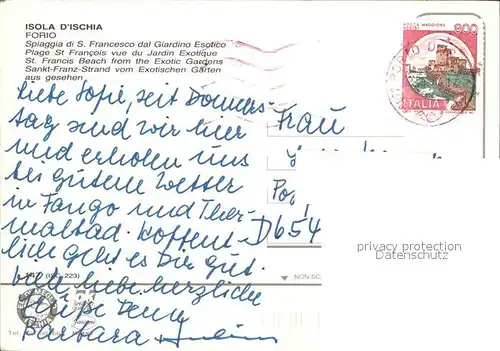 ISOLA D'ISCHIA
FORIO
Spiaggia di S. Francesco dal Giardino Esotico
Plage St François vue du Jardin Exotique
St. Francis Beach from the Exotic Gardens
Sankt-Franz-Strand vom Exotischen Garten
aus gesehen
POSTA MAGGIORE
800
ITALIA
Liebe Sofie, seit Donners-
tag sind wir hier
und erholen uns
bei gutem Wetter
in Fango und Ther-
malbad. Hoffent-
lich geht es Dir gut.
liebe herzliche
Grüße Deine
Barbara
Frau
D 654
privacy protection
Datenschutz
223)
NON SC